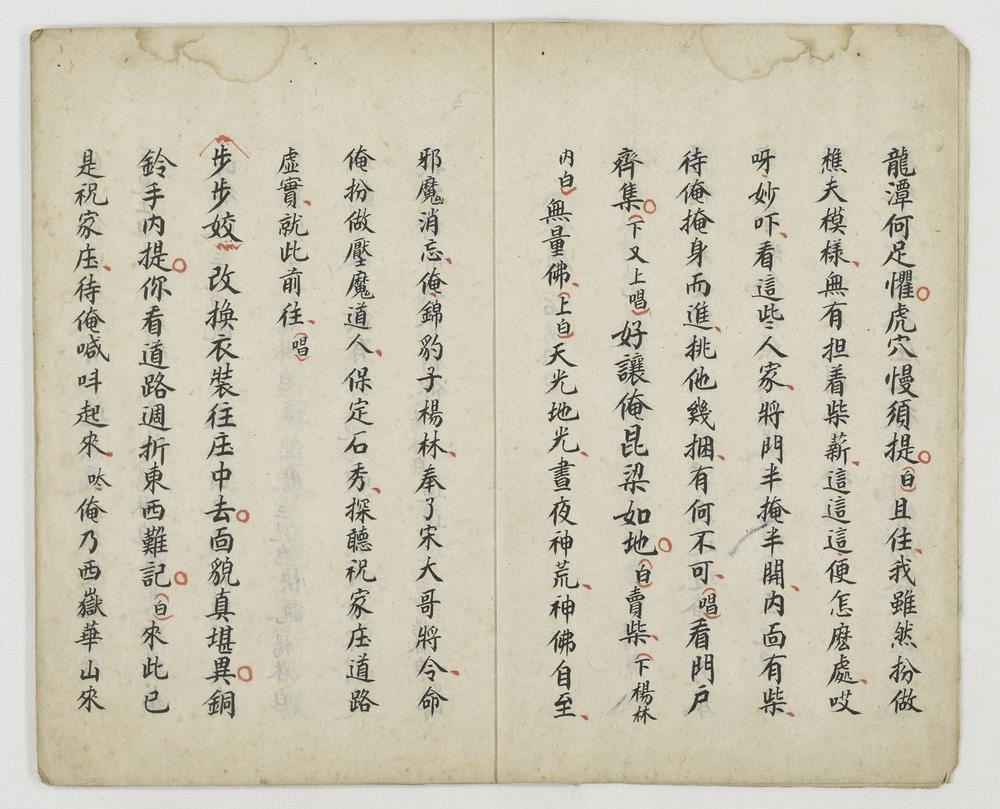 龍潭何足懼○虎穴慢須提○(白)且住、我雖然扮做
樵夫模樣、無有担着柴薪、這這這便怎麽處、哎
呀、妙吓、看這些人家、將門半掩半開、内面有柴、
待俺掩身而進、挑他幾捆、有何不可、(唱)看門戶
齊集○(下又上唱)好讓俺昆梁如地○(白)賣柴、(下楊林
内白)無量佛、(上白)天光地光、晝夜神荒、神佛自至、
邪魔消忘、俺、錦豹子楊林、奉了宋大哥將令、命
俺扮做壓魔道人、保定石秀、探聽祝家庄道路
虛實、就此前往、(唱)
步步姣 改換衣裝往庄中去○面貌真堪異○銅
鈴手内提○你看道路週折東西難記○(白)來此已
是祝家庄、待俺喊呌起來、呔、俺乃西嶽華山來